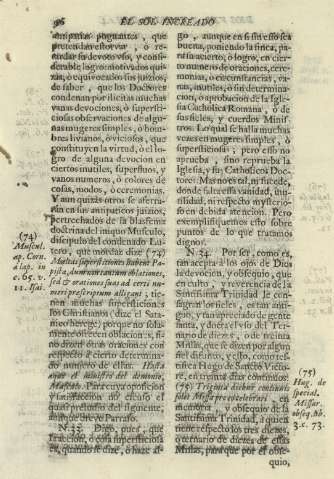 96 EL SOL INCREADO
antiparas pugnantes, que
pretendan estorvar, ò re-
tardar su devoto vso, y consi-
derable logro; motivados qui-
zàs, ò equivocados sus juizios,
de saber, que los Doctores
condenan por ilicitas muchas
vanas devociones, ò supersti-
ciosas observaciones de algu-
nas mugeres simples, ò hom-
bres livianos, ò viciosos, que
constituyen la virtud, ò el lo-
gro de alguna devocion en
ciertos inutiles, superfluos, y
vanos numeros, ò colores de
cosas, modos, ò ceremonias.
Y aun quizàs otros se aferra-
ràn en sus antiparcos juizios,
pertrechados de la blasfema
doctrina del iniquo Musculo,
discipulo del condenado Lu-
tero, que mordaz dize: (74)
Multas superstitiones habent Pa-
pistæ, dum
sed & orationes suas ad certi nu-
meri præscriptum alligant; tie-
nen muchas supersticiones
los Christianos (dize el Sata-
nico herege) porque no sola-
mente ofrecen oblaciones, si-
no dizen otras oraciones con
respecto à cierto determina-
do numero de ellas. Hasta
aqui el ministro del demonio,
Musculo. Para cuya oposicion
y satisfaccion no escuso el
quasi preludio del siguiente,
aunque breve Parrafo.
N. 33. Digo, pues, que
fraccion, ò cosa supersticiosa
es, quando se dize, ò haze al-
(74)
Muscul.
ap. Corn.
à lap. in
c. 65. v.
11. Isai.
go, aunque en si sin esso sea
buena, poniendo la finca, pa-
ra su acierto, ò logro, en cier-
to numero de oraciones, cere-
monias, ò circunstancias, va-
nas, inutiles, ò sin determina-
cion, ò aprobacion de la Igle-
sia Catholica Romana, ò de
sus fieles, y cuerdos Minis-
tros. Lo qual se halla muchas
vezes en mugeres simples, ò
supersticiosas; pero esso no
aprueba, sino reprueba la
Iglesia, y sus Catholicos Doc-
tores: Mas no es tal, ni sucede,
donde falta essa vanidad, inu-
tilidad, ni respecto mysterio-
so en debida atencion. Pero
exemplifiquemos esto sobre
puntos de lo que tratamos
dignos.
N. 34. Por ser, como es,
tan acepta à los ojos de Dios
la devocion, y obsequio, que
en culto, y reverencia de la
Santissima Trinidad le con-
sagran los fieles, es tan anti-
guo, y tan apreciado de gente
santa, y docta el vso del Ter-
nario de diez, ò de treinta
Missas, que se dizen por algun
fiel difunto, y esto, como tes-
tifica Hugo de Sancto Victo-
re, en treinta dias continuos:
(75) Triginta diebus continuis
solet Missa pro eo celebrari, en
memoria, y obsequio de la
Santissima Trinidad, à quien
tiene respecto los tres diezes,
ò ternario de diezes de estas
Missas, para que por el obse-
quio,
(75)
Hug. de
special.
Missar.
obseq. lib.
3. c. 73.